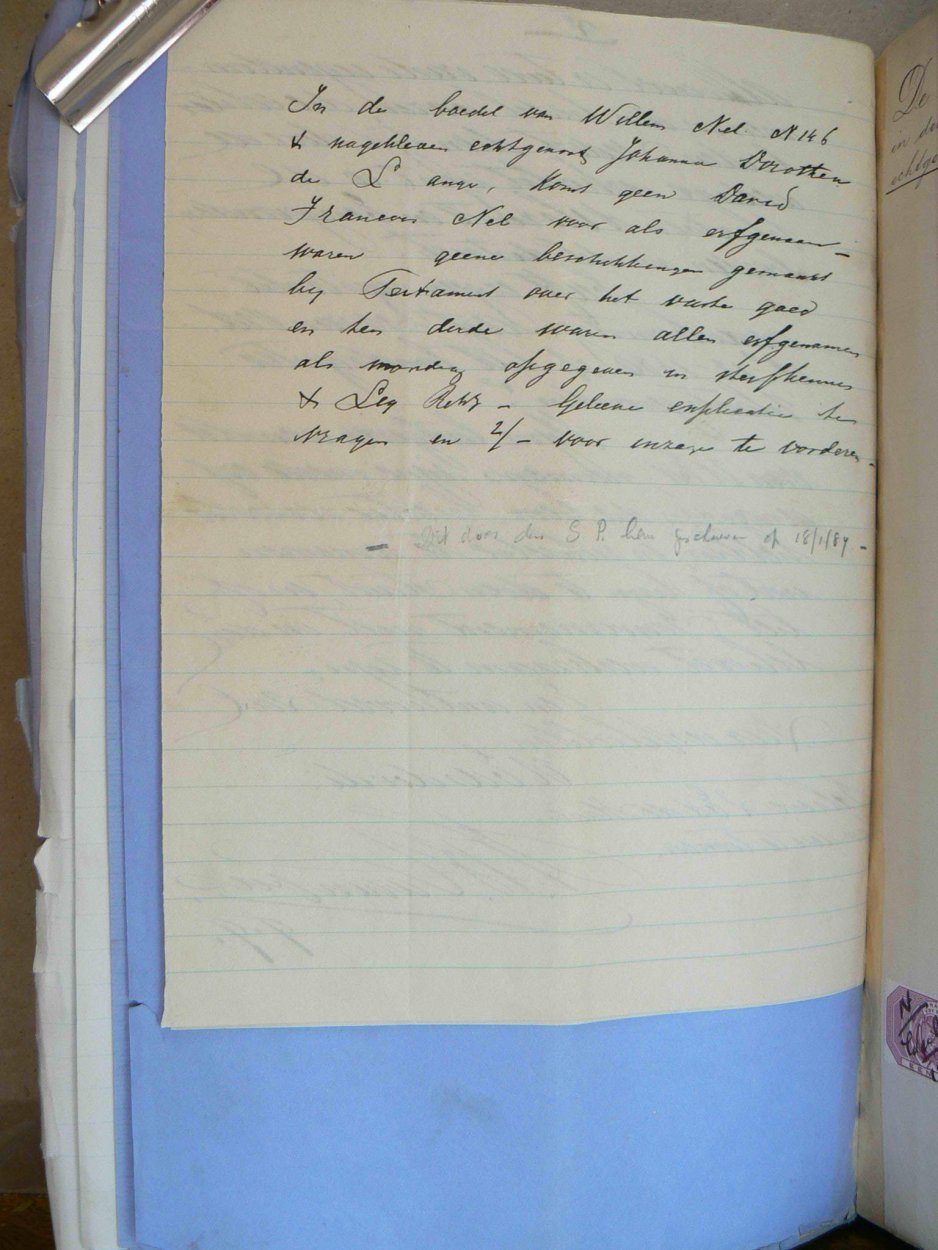 In de boedel van Willem Nel N 146
& nagebleven echtgenoot Johanna Dorothea
de L ange, komt geen David
Francois Nel voor als erfgenaam –
waren geene beschikkingen gemaakt
by Testament over het vaste goed
en ten derde waren allen erfgenamen
als mondig opgegeven in sterfkennis
& Liq Rek – Gelieve explicatie te
vragen en 2/– voor inzage te vorderen –
– Dit door den S P. hem geschreven op 18/1/89 –
De
in de
echtge